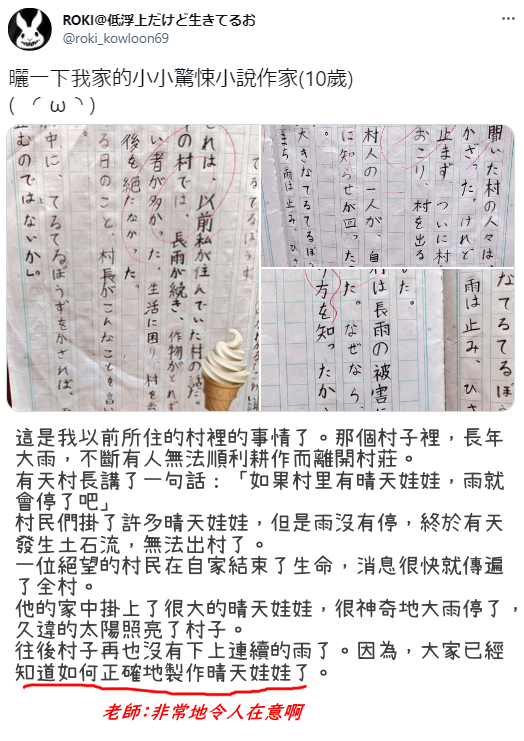 ROKI@低浮上だけど生きてるお
@roki_kowloon69
曬一下我家的小小驚悚小說作家(10歲)
( ◜ω◝ )
これは、以前私が住んでいた村の話だ
の村では、長雨が続き、作物がとれず
い者が多かった。生活に困り、村を去
後を絶たなかった。
る日のこと、村長がこんなことを言い
中に、てるてるぼうずをかざれば、
止むのではないか」。
聞いた村の人々は
かざった。けれど
止まず、ついに村
おこり、村を出る
村人の一人が、自
に知らせが回った
大きなてるてるぼう
まち雨は止み、ひさ
なてるてるぼ
雨は止み、ひさ
した。
は長雨の被害に
た。なぜなら、
り方を知ったか
這是我以前所住的村裡的事情了。那個村子裡，長年
大雨，不斷有人無法順利耕作而離開村莊。
有天村長講了一句話：「如果村里有晴天娃娃，雨就
會停了吧」
村民們掛了許多晴天娃娃，但是雨沒有停，終於有天
發生土石流，無法出村了。
一位絕望的村民在自家結束了生命，消息很快就傳遍
了全村。
他的家中掛上了很大的晴天娃娃，很神奇地大雨停了，
久違的太陽照亮了村子。
往後村子再也沒有下上連續的雨了。因為，大家已經
知道如何正確地製作晴天娃娃了。
老師:非常地令人在意啊